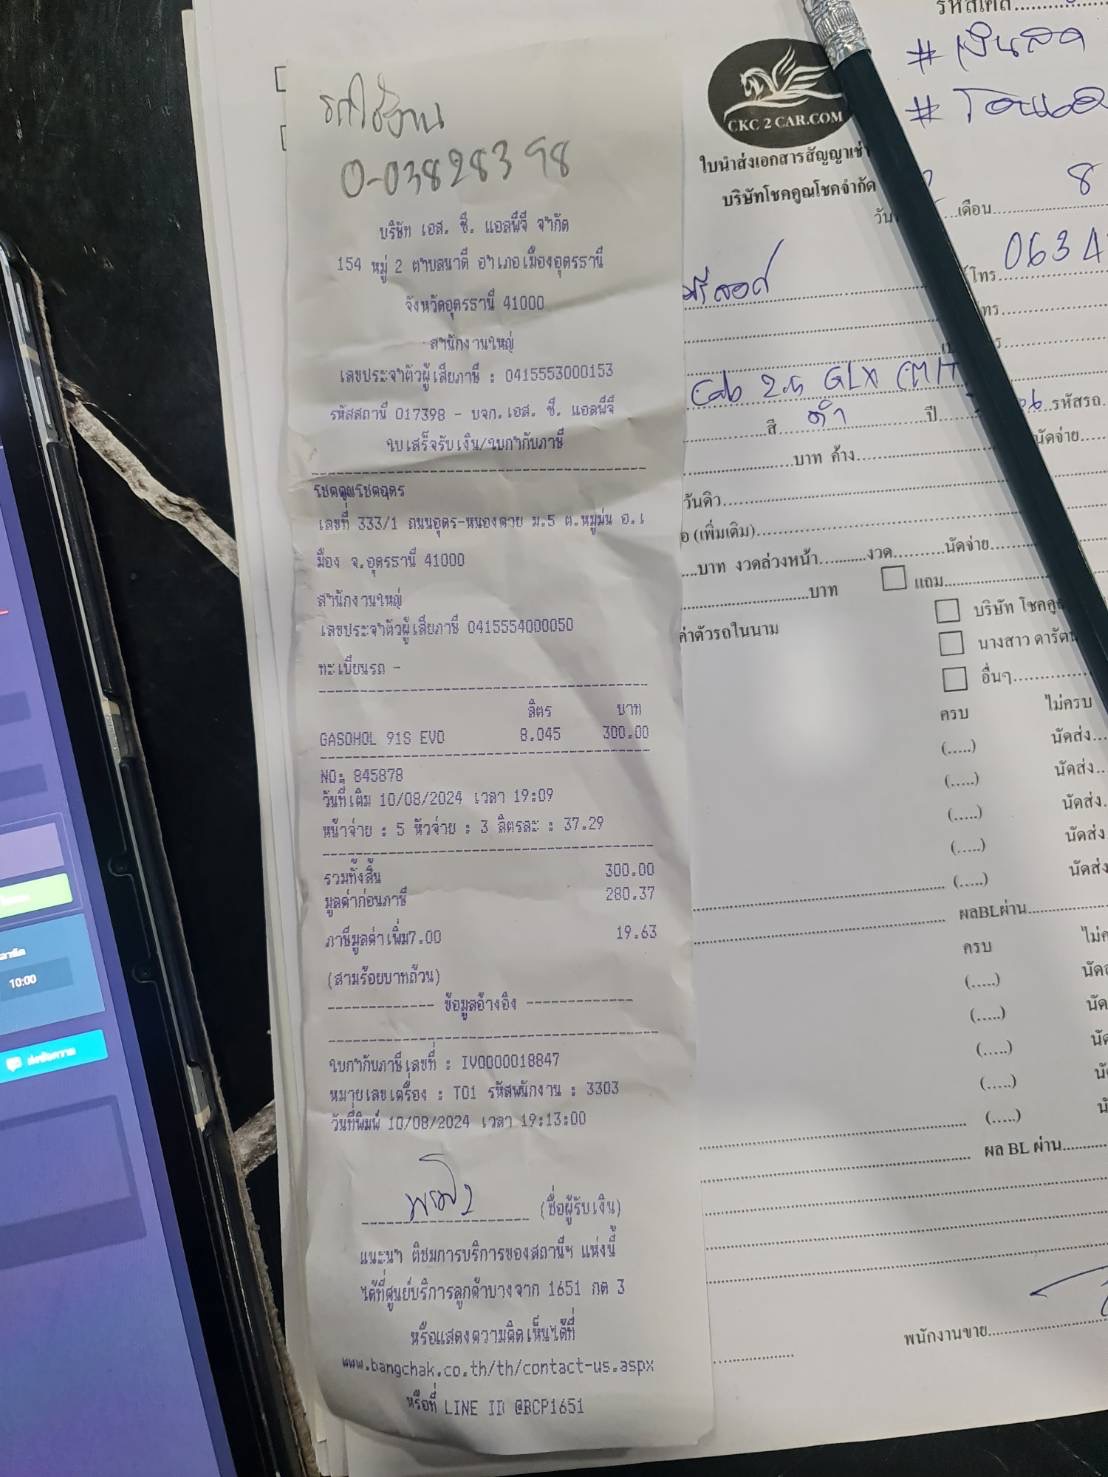 รถใช้งาน
0-03828398
บริษัท เอส. ซี. แอลพีจี จำกัด
154 หมู่ 2 ตำบลนาดี อำเภอเมืองอุดรธานี
จังหวัดอุดรธานี 41000
สำนักงานใหญ่
เลขประจำตัวผู้เสียภาษี : 0415553000153
รหัสสถานี 017398 - บจก.เอส. ซี. แอลพีจี
ใบเสร็จรับเงิน/ใบกำกับภาษี
โชคคูณโชคอุดร
เลขที่ 333/1 ถนนอุดร-หนองคาย ม.5 ต.หมูม่น อ.เ
มือง จ.อุดรธานี 41000
สำนักงานใหญ่
เลขประจำตัวผู้เสียภาษี 0415554000050
ทะเบียนรถ -
ลิตร บาท
GASOHOL 91S EVO 8.045 300.00
NO: 845878
วันที่เติม 10/08/2024 เวลา 19:09
หน้าจ่าย : 5 หัวจ่าย : 3 ลิตรละ : 37.29
รวมทั้งสิ้น 300.00
มูลค่าก่อนภาษี 280.37
ภาษีมูลค่าเพิ่ม7.00 19.63
(สามร้อยบาทถ้วน)
------------ ข้อมูลอ้างอิง ------------
ใบกำกับภาษีเลขที่ : IV0000018847
หมายเลขเครื่อง : T01 รหัสพนักงาน : 3303
วันที่พิมพ์ 10/08/2024 เวลา 19:13:00
(ชื่อผู้รับเงิน)
แนะนำ ติชมการบริการของสถานีฯ แห่งนี้
ได้ที่ศูนย์บริการลูกค้าบางจาก 1651 กด 3
หรือแสดงความคิดเห็นได้ที่
www.bangchak.co.th/th/contact-us.aspx
หรือที่ LINE ID @BCP1651
รหัสเคส
# เงินสด
CKC 2 CAR.COM
ใบนำส่งเอกสารสัญญาเช่า
บริษัทโชคคูณโชคจำกัด
เดือน 8
โทร. 0634
Cab 2.5 GLX (M/T)
สี ดำ ปี รหัสรถ
บาท ค้าง นัดจ่าย
วันดิว
(เพิ่มเติม)
บาท งวดล่วงหน้า งวด นัดจ่าย
บาท แถม
ค่าตัวรถในนาม
บริษัท โชคคูณ
นางสาว ดารัตน
อื่นๆ
ครบ ไม่ครบ
(.....) นัดส่ง
(.....) นัดส่ง
(.....) นัดส่ง
(.....) นัดส่ง
(.....) นัดส่ง
ผลBLผ่าน
ครบ
(.....)
(.....)
(.....)
(.....)
(.....)
ผล BL ผ่าน
พนักงานขาย
10:00
ส่งข้อความ